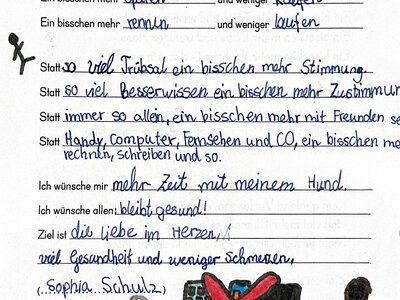 Ein bisschen mehr sparen und weniger kaufen
Ein bisschen mehr rennen und weniger laufen
Statt so viel Trübsal ein bisschen mehr Stimmung.
Statt so viel Besserwissen ein bisschen mehr Zustimmun
Statt immer so allein, ein bisschen mehr mit Freunden se
Statt Handy, Computer, Fernsehen und CO, ein bisschen me
rechnen, schreiben und so.
Ich wünsche mir mehr Zeit mit meinem Hund.
Ich wünsche allen: bleibt gesund!
Ziel ist die Liebe im Herzen,
viel Gesundheit und weniger Schmerzen,
(Sophia Schulz)